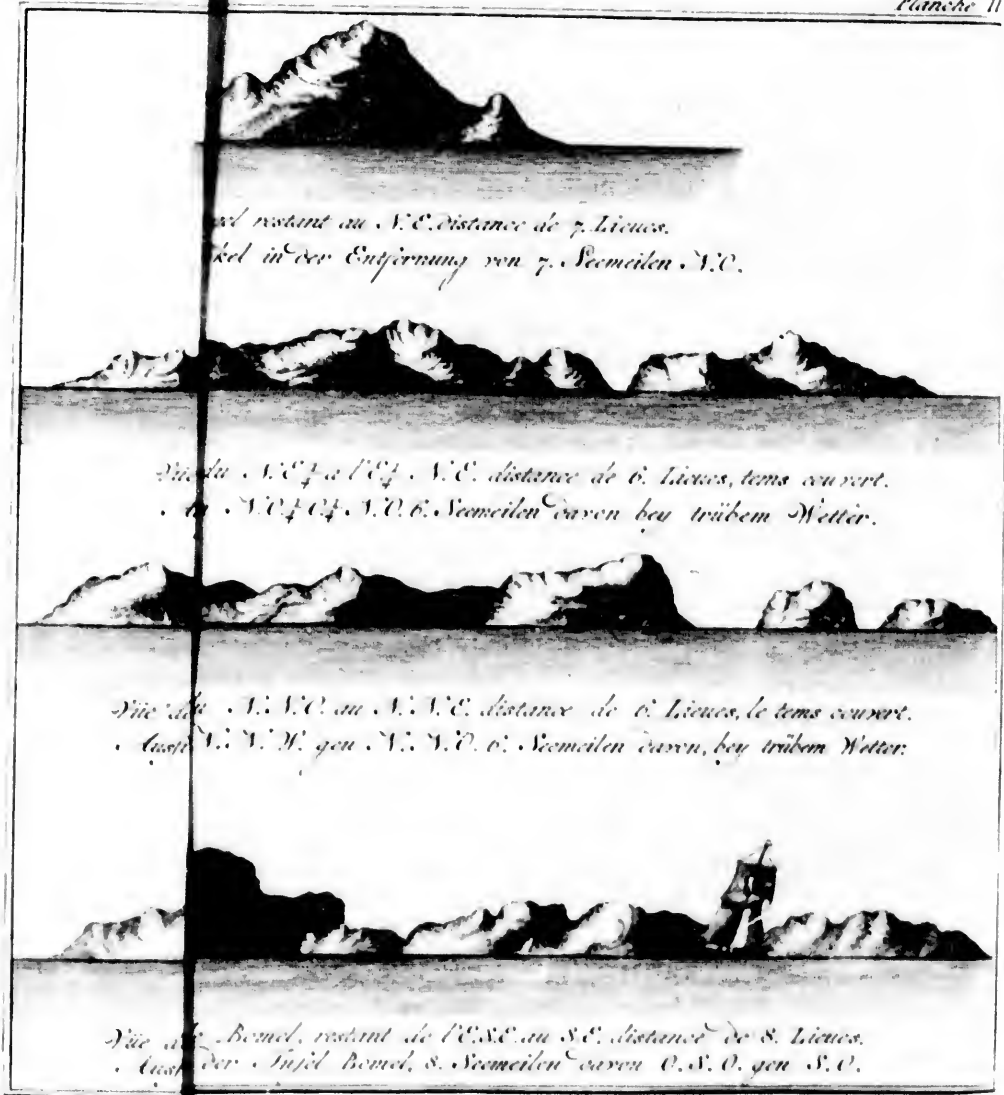 Planche II
restant au N.E. distance de 7. Lieues.
kel in der Entfernung von 7. Seemeilen N.O.
Vüe du N.E¼ a l'E¼ N.E. distance de 6. Lieues, tems couvert.
N.O¼ O¼ N.O. 6. Seemeilen davon bey trübem Wetter.
Vüe du N.N.O. au N.N.E. distance de 6. Lieues, le tems couvert.
N.N.W. gen N.N.O. 6. Seemeilen davon, bey trübem Wetter.
Vüe de Bomel, restant de l'E.S.E. au S.E. distance de 8. Lieues.
der Insel Bomel, 8. Seemeilen davon O.S.O. gen S.O.